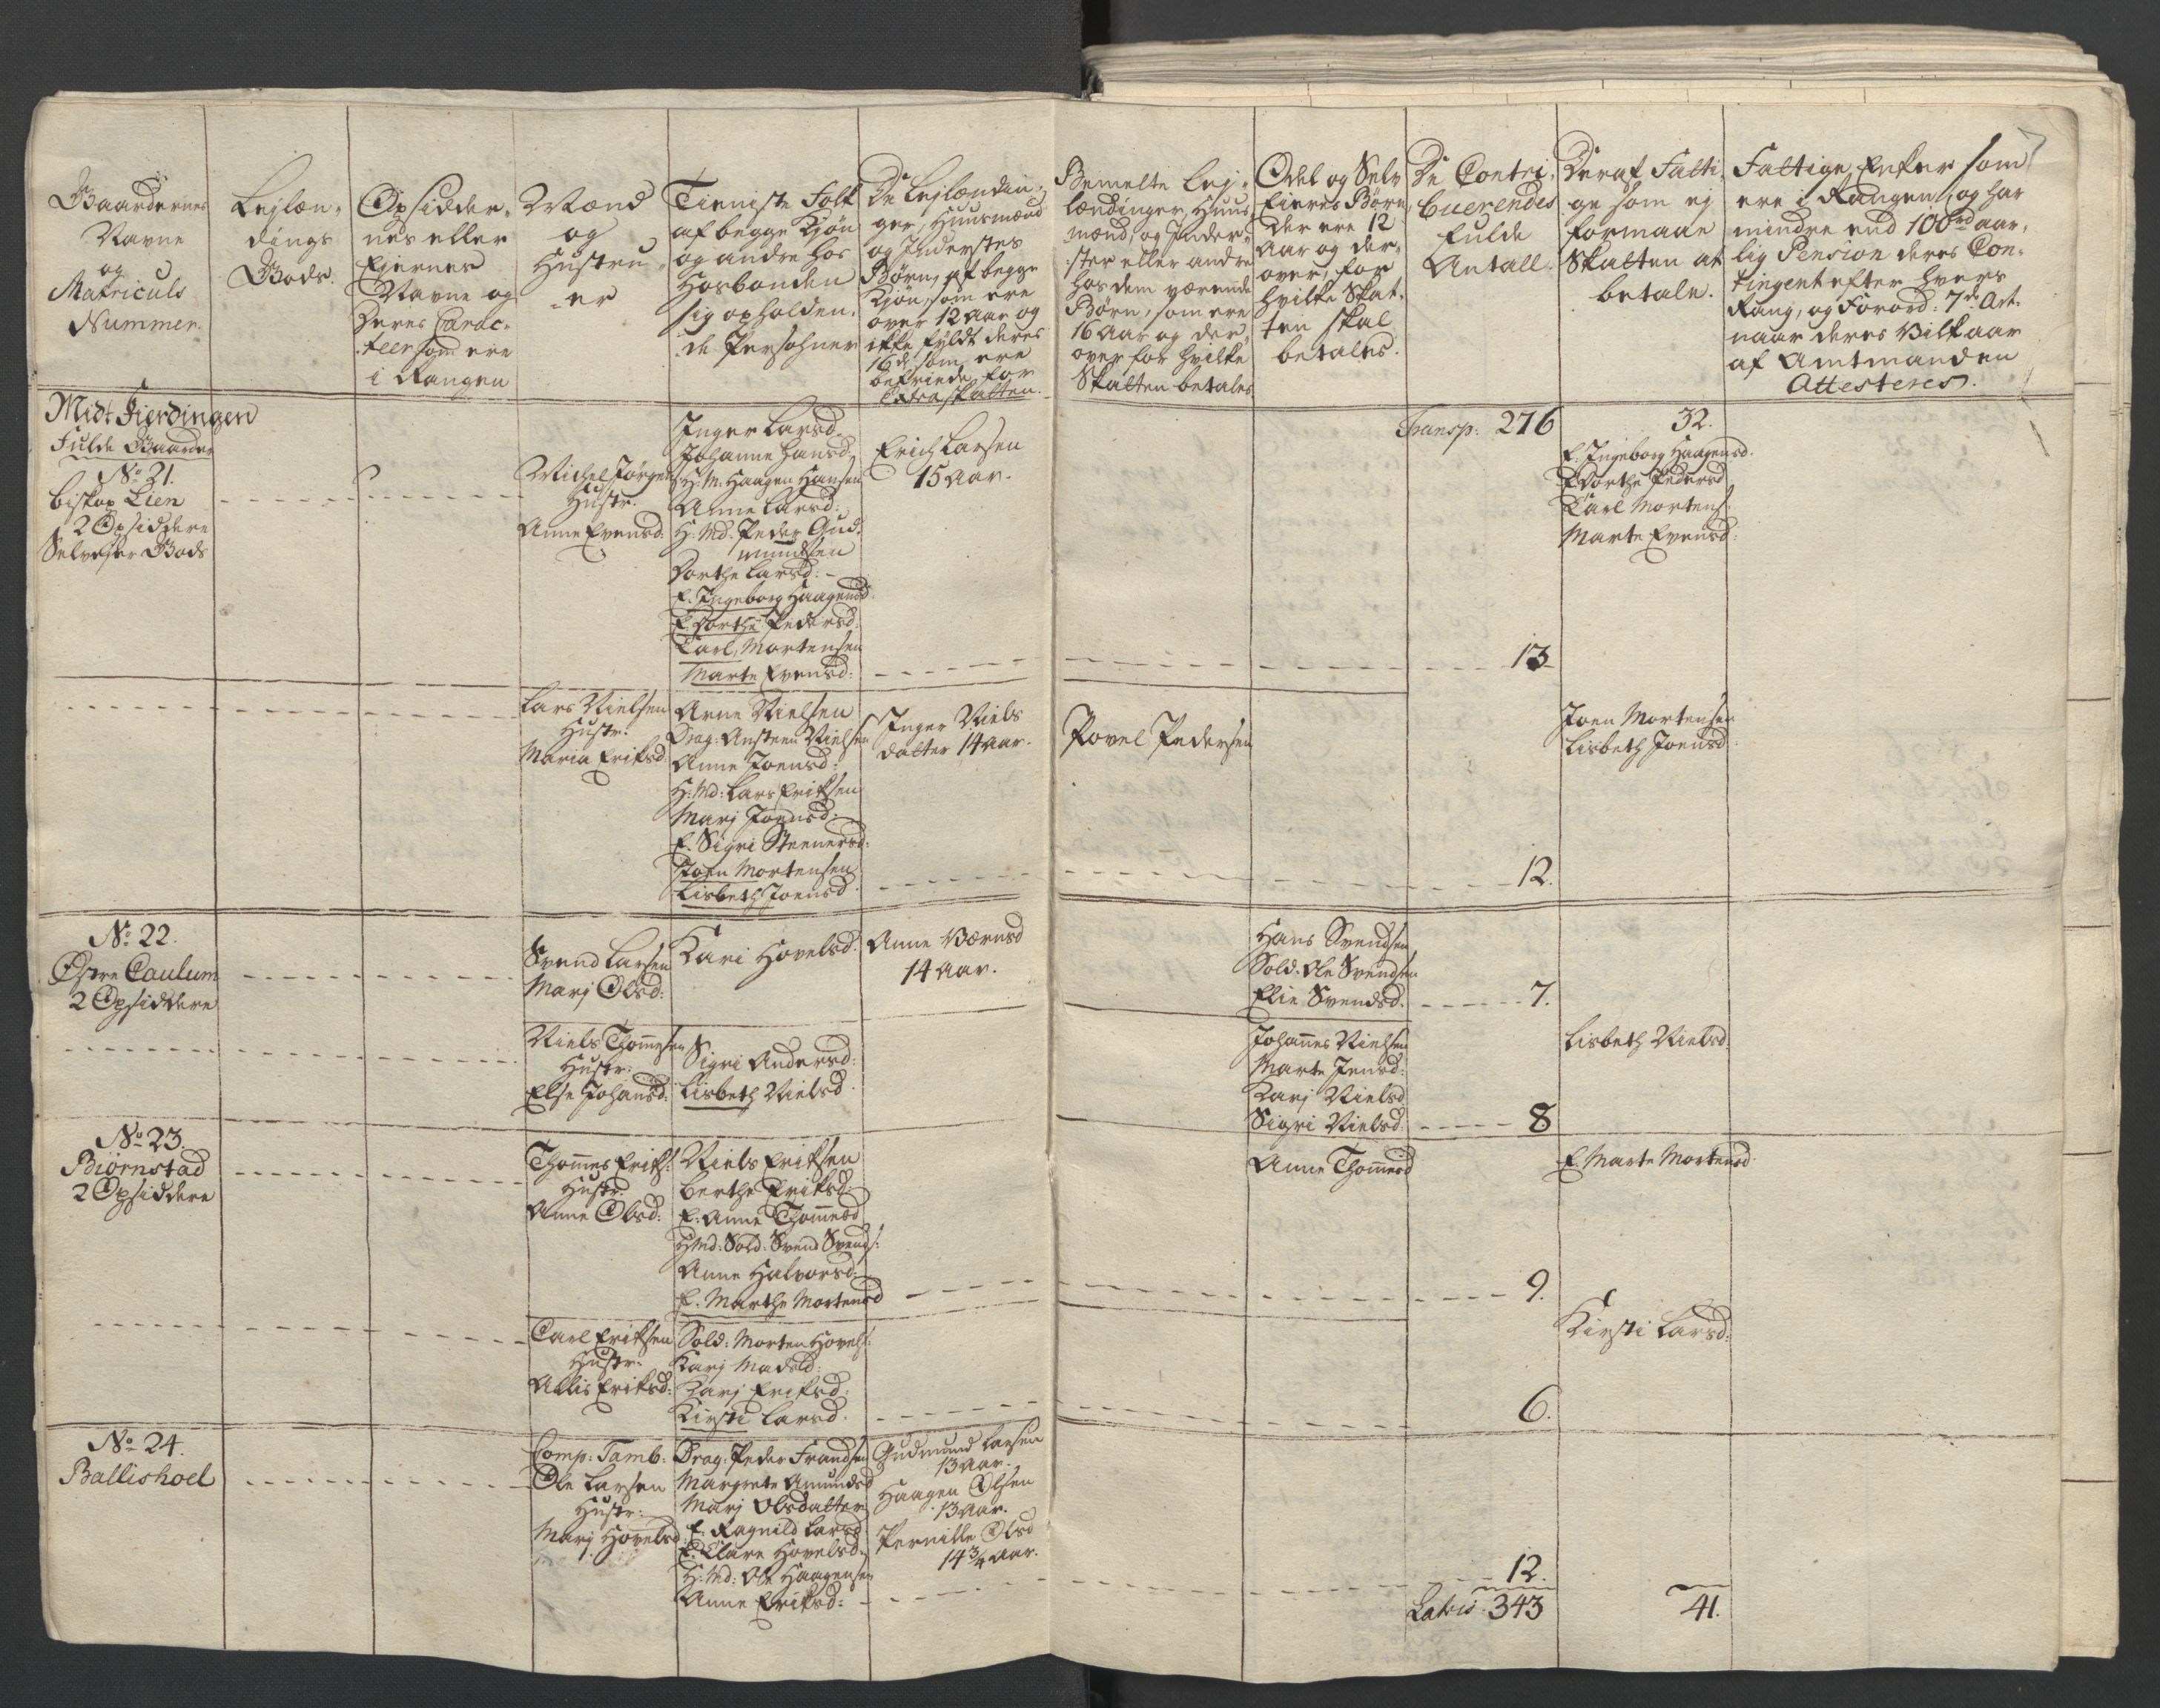 Gaardernes
Navne
og
Matriculs
Nummer.
Lejlæn-
dings
Gods.
Opsidder-
nes eller
Ejernes
Navne og
deres Carac-
teer som ere
i Rangen
Mænd
og
Hustru-
er
Tieniste Folk
af begge Kjøn
og andre hos
Hosbonden
sig opholden-
de Persohner
De Lejlændin-
ger, Huusmænd
og Inderstes
Børn, af begge
Kjøn, som ere
over 12 Aar og
ikke fyldt deres
16de, som ere
befriede for
Extraskatten.
Bemelte Lej-
lændinger, Huus-
mænd, og Inder-
ster eller andre
hos dem værende
Børn, som ere
16 Aar og der-
over for hvilke
Skatten betales
Odel og Selv
Eieres Børn
der ere 12
Aar og der-
over, for
hvilke Skat-
ten skal
betales.
De Contri-
buerendes
fulde
Antall.
Deraf Fatti-
ge som ej
formaae
Skatten at
betale.
Fattige Enker som
ere i Rangen, og har
mindre end 100 rd aar-
lig Pension deres Con-
tingent efter hvers
Rang, og Forord: 7de Art.
naar deres Vilkaar
af Amtmanden
Attesteres.
Midt Fierdingen
Fulde Gaarder
No 21.
Biskop Lien
2 Opsiddere
Selvejer Gods
Michel Jørgens
Hustr:
Anne Evensd:
Inger Larsd.
Johanne Hansd.
H: M: Haagen Hansen
Anne Larsd:
H: Md: Peder Gud-
mundsen
Dorthe Larsd:
E. Ingeborg Haagensd
E. Dorthe Pedersd:
Carl Mortensen
Marte Evensd:
Erich Larsen
15 Aar.
Transp: 276
13
32.
E. Ingeborg Haagensd.
E Dorthe Pedersd
Carl Mortens:
Marte Evensd:
Lars Nielsen
Hustr:
Maria Eriksd:
Arne Nielsen
Drag: Ansteen Nielsen
Anne Joensd:
H: Md: Lars Eriksen
Marj Joensd:
E. Sigri Steenersd:
Joen Mortensen
Lisbeth Joensd
Inger Niels
datter 14 Aar.
Povel Pedersen
12.
Joen Mortensen
Lisbeth Joensd
No 22.
Østre Caulum
2 Opsiddere
Svend Larsen
Marj Olsd:
Kari Hovelsd:
Anne Værnsd
14 Aar.
Hans Svendsen
Sold. Ole Svendsen
Elie Svendsd.
7.
Niels Thommesen
Hustr:
Else Johansd:
Sigri Andersd:
Lisbeth Nielsd
Johannes Nielsen
Marte Jensd:
Karj Nielsd
Sigri Nielsd.
8
Lisbeth Nielsd.
No 23.
Biørnstad
2 Opsiddere
Thommes Eriks:
Hustr:
Anne Olsd:
Niels Eriksen
Berthe Eriksd:
E: Anne Thommesd
HMd: Sold: Svend Svends:
Anne Halvorsd:
E. Marthe Mortensd
Anne Thommesd
9.
E. Marte Mortensd
Carl Eriksen
Hustr:
Allis Eriksd:
Sold: Morten Hovels:
Karj Madsd:
Karj Eriksd:
Kirsti Larsd.
6.
Kirsti Larsd:
No 24.
Ballishoel
Comp: Tamb:
Ole Larsen
Hustr:
Marj Hovelsd
Drag: Peder Frandsen
Margrete Amundsd
Marj Olsdatter
E. Ragnild Larsd
E. Clare Hovelsd:
H: Md: Ole Haagensen
Anne Eriksd:
Gudmund Larsen
13 Aar.
Haagen Olsen
13 Aar.
Pernille Olsd
14 3/4 Aar.
12.
Latris: 343
41.